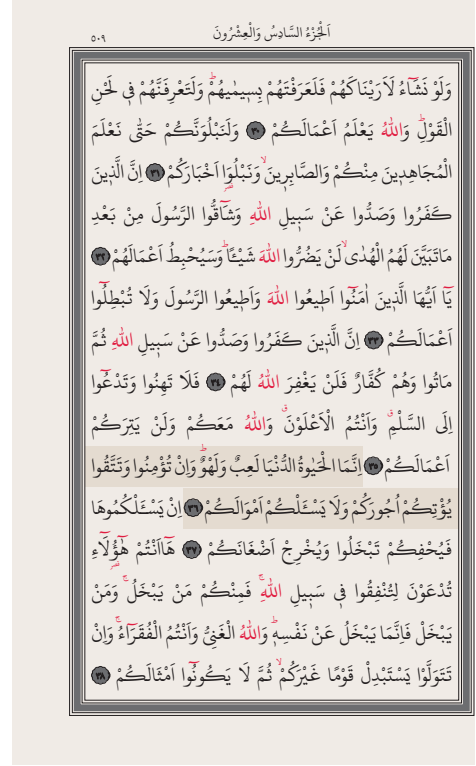 اَلْجُزْءُ السَّادِسُ وَالْعِشْرُونَ
٥٠٩
وَلَوْ نَشَٓاءُ لَاَرَيْنَاكَهُمْ فَلَعَرَفْتَهُمْ بِسِيمٰيهُمْۜ وَلَتَعْرِفَنَّهُمْ فِي لَحْنِ
الْقَوْلِۜ وَاللّٰهُ يَعْلَمُ اَعْمَالَكُمْ ٣٠ وَلَنَبْلُوَنَّكُمْ حَتّٰى نَعْلَمَ
الْمُجَاهِدِينَ مِنْكُمْ وَالصَّابِرِينَۙ وَنَبْلُوَ۬ا اَخْبَارَكُمْ ٣١ اِنَّ الَّذِينَ
كَفَرُوا وَصَدُّوا عَنْ سَبِيلِ اللّٰهِ وَشَٓاقُّوا الرَّسُولَ مِنْ بَعْدِ
مَاتَبَيَّنَ لَهُمُ الْهُدٰىۙ لَنْ يَضُرُّوا اللّٰهَ شَيْـًٔاۜ وَسَيُحْبِطُ اَعْمَالَهُمْ ٣٢
يَٓا اَيُّهَا الَّذِينَ اٰمَنُٓوا اَطِيعُوا اللّٰهَ وَاَطِيعُوا الرَّسُولَ وَلَا تُبْطِلُٓوا
اَعْمَالَكُمْ ٣٣ اِنَّ الَّذِينَ كَفَرُوا وَصَدُّوا عَنْ سَبِيلِ اللّٰهِ ثُمَّ
مَاتُوا وَهُمْ كُفَّارٌ فَلَنْ يَغْفِرَ اللّٰهُ لَهُمْ ٣٤ فَلَا تَهِنُوا وَتَدْعُٓوا
اِلَى السَّلْمِۗ وَاَنْتُمُ الْاَعْلَوْنَۗ وَاللّٰهُ مَعَكُمْ وَلَنْ يَتِرَكُمْ
اَعْمَالَكُمْ ٣٥ اِنَّمَا الْحَيٰوةُ الدُّنْيَا لَعِبٌ وَلَهْوٌۜ وَاِنْ تُؤْمِنُوا وَتَتَّقُوا
يُؤْتِكُمْ اُجُورَكُمْ وَلَا يَسْـَٔلْكُمْ اَمْوَالَكُمْ ٣٦ اِنْ يَسْـَٔلْكُمُوهَا
فَيُحْفِكُمْ تَبْخَلُوا وَيُخْرِجْ اَضْغَانَكُمْ ٣٧ هَٓا اَنْتُمْ هٰٓؤُ۬لَٓاءِ
تُدْعَوْنَ لِتُنْفِقُوا فِي سَبِيلِ اللّٰهِۚ فَمِنْكُمْ مَنْ يَبْخَلُۚ وَمَنْ
يَبْخَلْ فَاِنَّمَا يَبْخَلُ عَنْ نَفْسِهِۜ وَاللّٰهُ الْغَنِيُّ وَاَنْتُمُ الْفُقَرَٓاءُۚ وَاِنْ
تَتَوَلَّوْا يَسْتَبْدِلْ قَوْمًا غَيْرَكُمْۙ ثُمَّ لَا يَكُونُٓوا اَمْثَالَكُمْ ٣٨